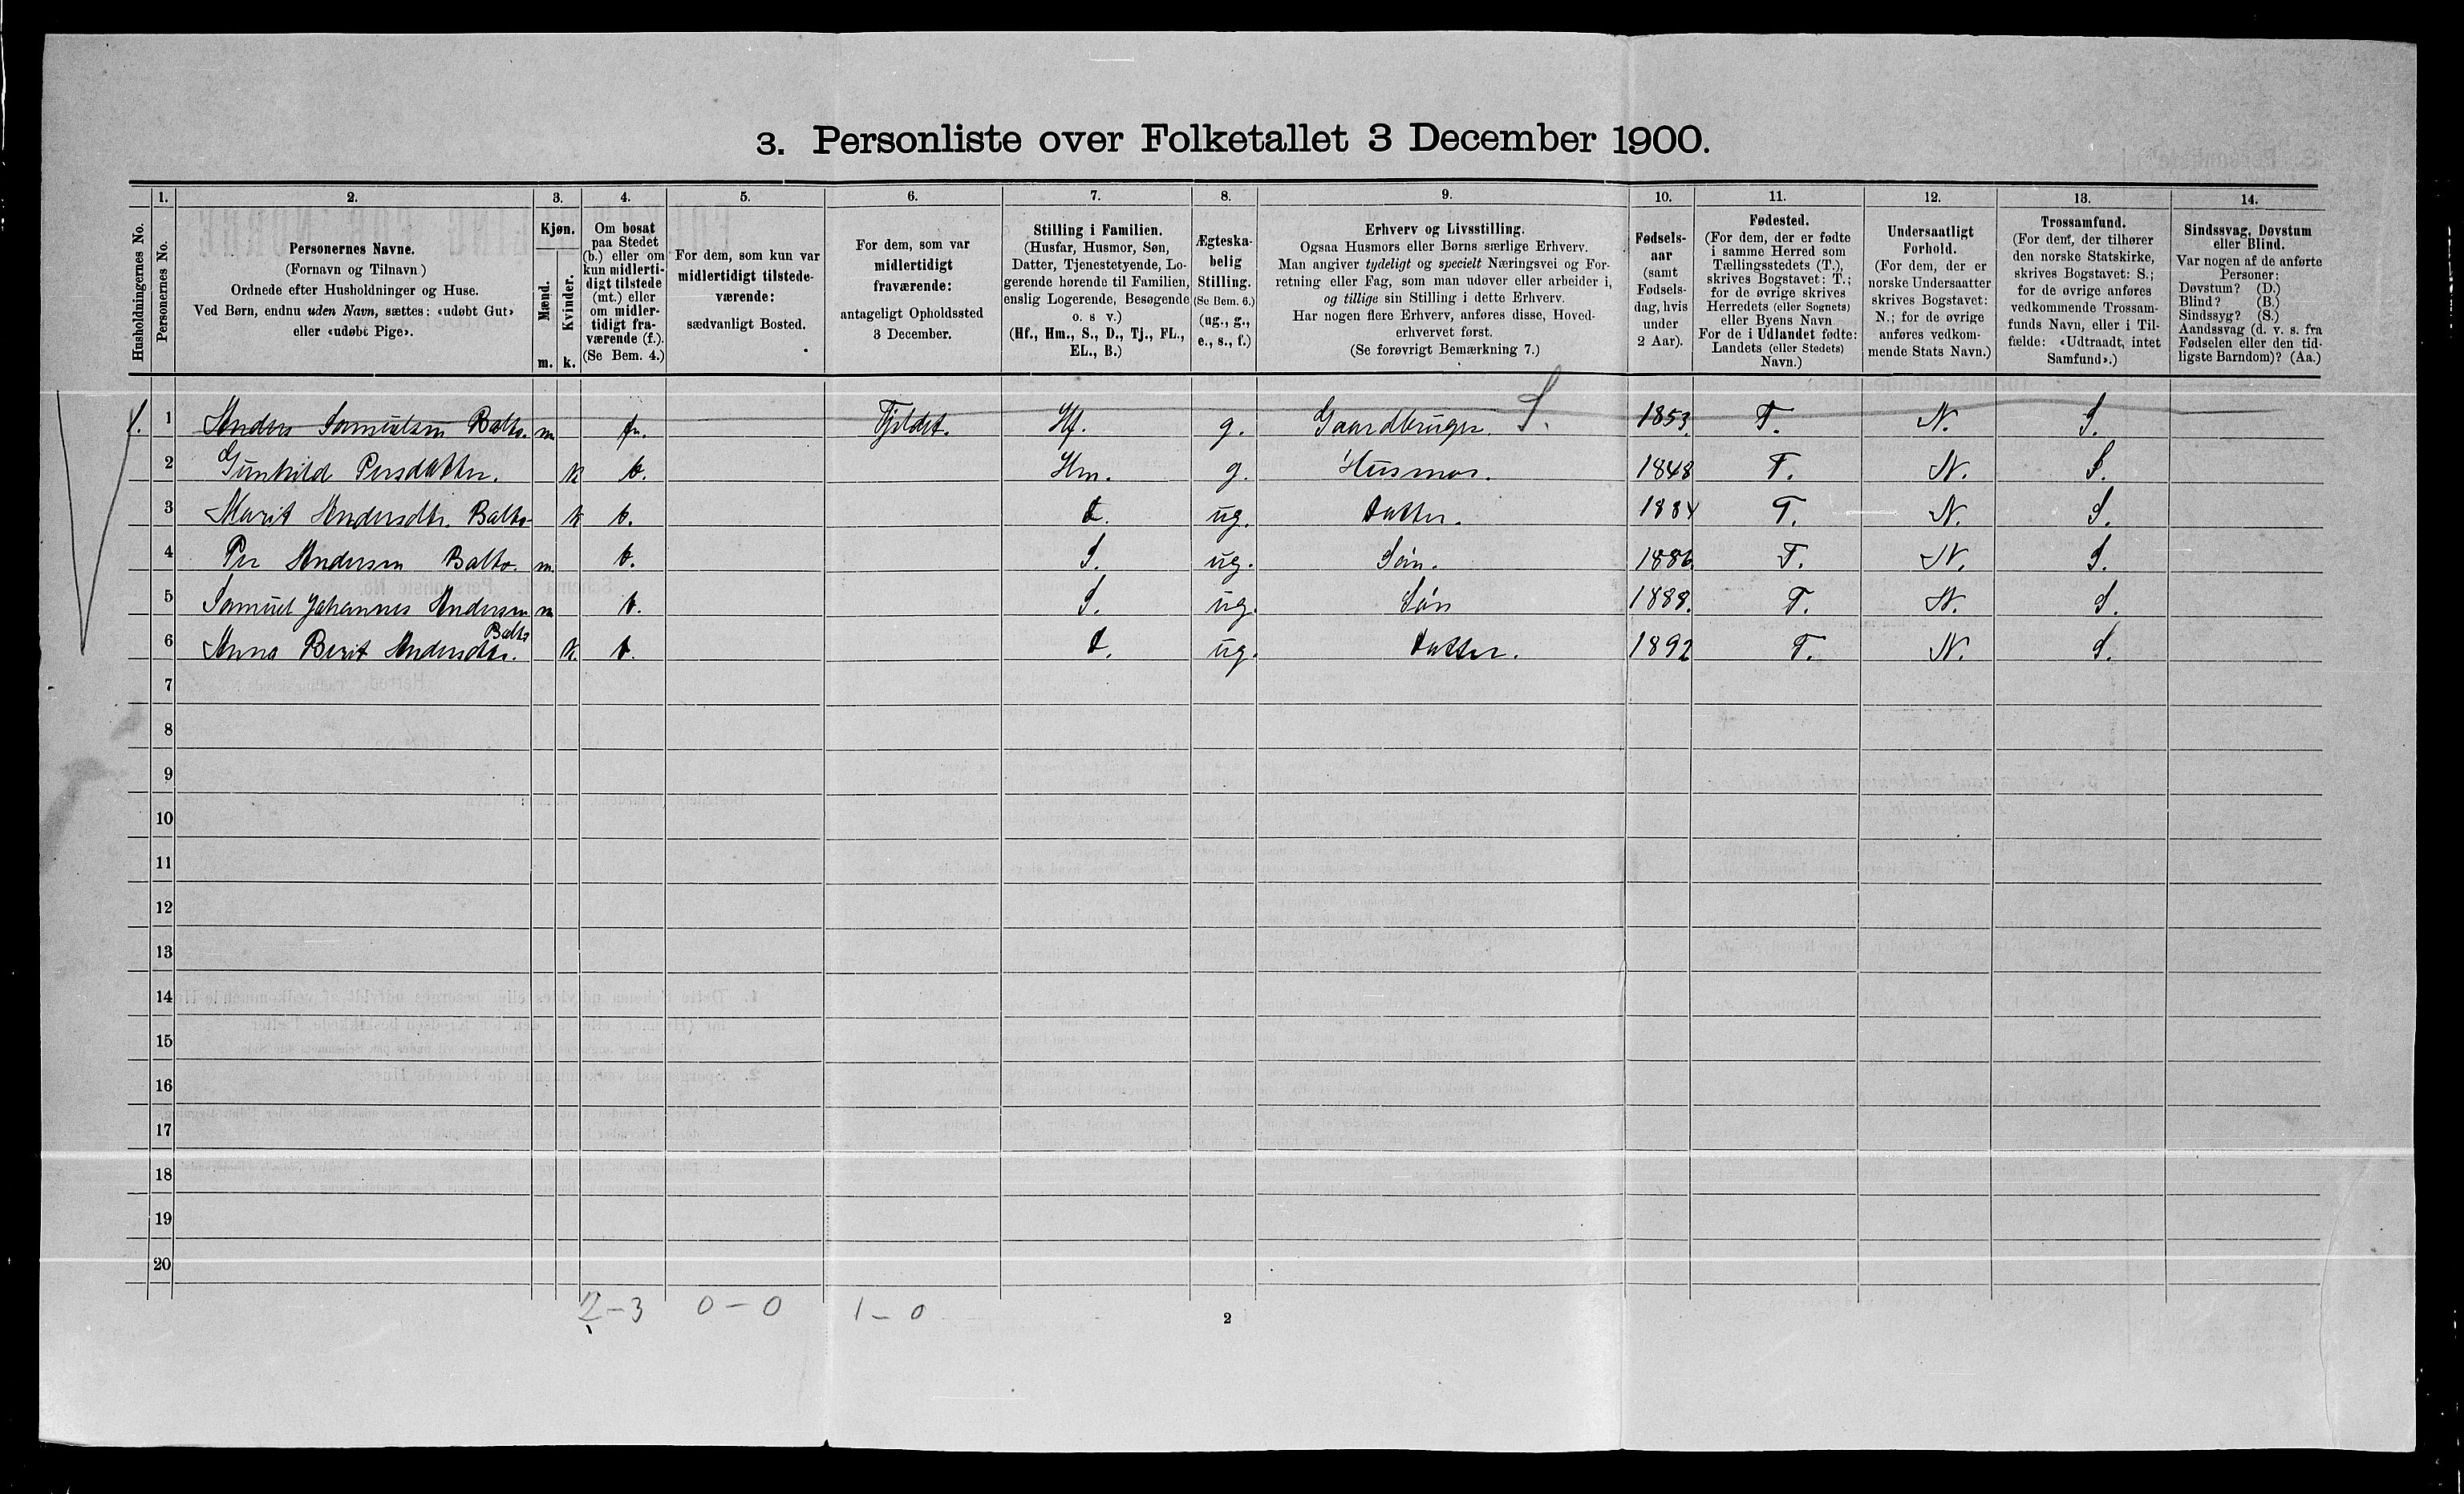 3. Personliste over Folketallet 3 December 1900.
Husholdningernes No.
1.
Personernes No.
2.
Personernes Navne.
(Fornavn og Tilnavn)
Ordnede efter Husholdninger og Huse.
Ved Børn, endnu uden Navn, sættes: «udøbt Gut»
eller «udøbt Pige».
3.
Kjøn.
Mænd.
m.
Kvinder.
k.
4.
Om bosat
paa Stedet
(b.) eller om
kun midlerti-
digt tilstede
(mt.) eller
om midler-
tidigt fra-
værende (f.).
(Se Bem. 4.)
5.
For dem, som kun var
midlertidigt tilstede-
værende:
sædvanligt Bosted.
6.
For dem, som var
midlertidigt
fraværende:
antageligt Opholdssted
3 December.
7.
Stilling i Familien.
(Husfar, Husmor, Søn,
Datter, Tjenestetyende, Lo-
gerende hørende til Familien,
enslig Logerende, Besøgende
o. s v.)
(Hf., Hm., S., D., Tj., FL.,
EL., B.)
8.
Ægteska-
belig
Stilling.
(Se Bem. 6.)
(ug., g.,
e., s., f.)
9.
Erhverv og Livsstilling.
Ogsaa Husmors eller Børns særlige Erhverv.
Man angiver tydeligt og specielt Næringsvei og For-
retning eller Fag, som man udøver eller arbeider i,
og tillige sin Stilling i dette Erhverv.
Har nogen flere Erhverv, anføres disse, Hoved-
erhvervet først.
(Se forøvrigt Bemærkning 7.)
10.
Fødsels-
aar
(samt
Fødsels-
dag, hvis
under
2 Aar).
11.
Fødested.
(For dem, der er fødte
i samme Herred som
Tællingsstedets (T.),
skrives Bogstavet: T.;
for de øvrige skrives
Herredets (eller Sognets)
eller Byens Navn
For de i Udlandet fødte:
Landets (eller Stedets)
Navn.)
12.
Undersaatligt
Forhold.
(For dem, der er
norske Undersaatter
skrives Bogstavet:
N.; for de øvrige
anføres vedkom-
mende Stats Navn.)
13.
Trossamfund.
(For dem, der tilhører
den norske Statskirke,
skrives Bogstavet: S.;
for de øvrige anføres
vedkommende Trossam-
funds Navn, eller i Til-
fælde: «Udtraadt, intet
Samfund».)
14.
Sindssvag, Døvstum
eller Blind.
Var nogen af de anførte
Personer:
Døvstum? (D.)
Blind? (B.)
Sindssyg? (S.)
Aandssvag (d. v. s. fra
Fødselen eller den tid-
ligste Barndom)? (Aa.)
1. 1 Anders Samuelsen Balto. m. Hf. g. Gaardbruger. S. 1853. T. N. S.
2 Gunhild Persdatter. k b. Hm. g. Husmor. 1848 T. N. S.
3 Marit Andersdtr. Balto k b. d. ug. datter. 1884 T. N. S.
4 Per Andersen Balto. m. b. S. ug. Søn. 1886. T. N. S.
5 Samuel Johannes Andersen m b. S. ug. Søn 1888. T. N. S.
Balto
6 Anna Berit Andersdtr. k. b. d. ug. datter. 1892 T. N. S.
7
8
9
10
11
12
13
14
15
16
17
18
19
20
2-3 0-0 1-0
2